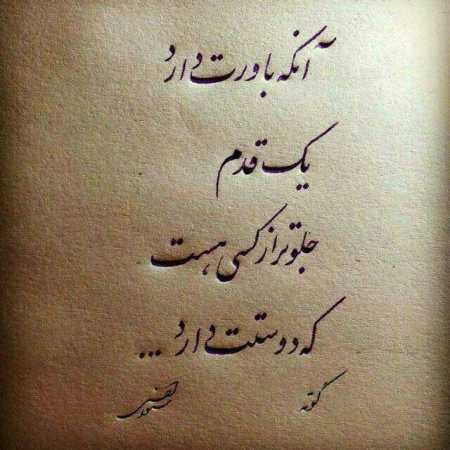 آنکه باورت دارد
یک قدم
جلوتر از کسی هست
که دوستت دارد ...
گوته